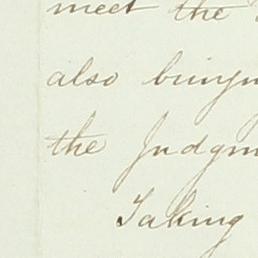 meet the
also bringin
the Judgm
Taking